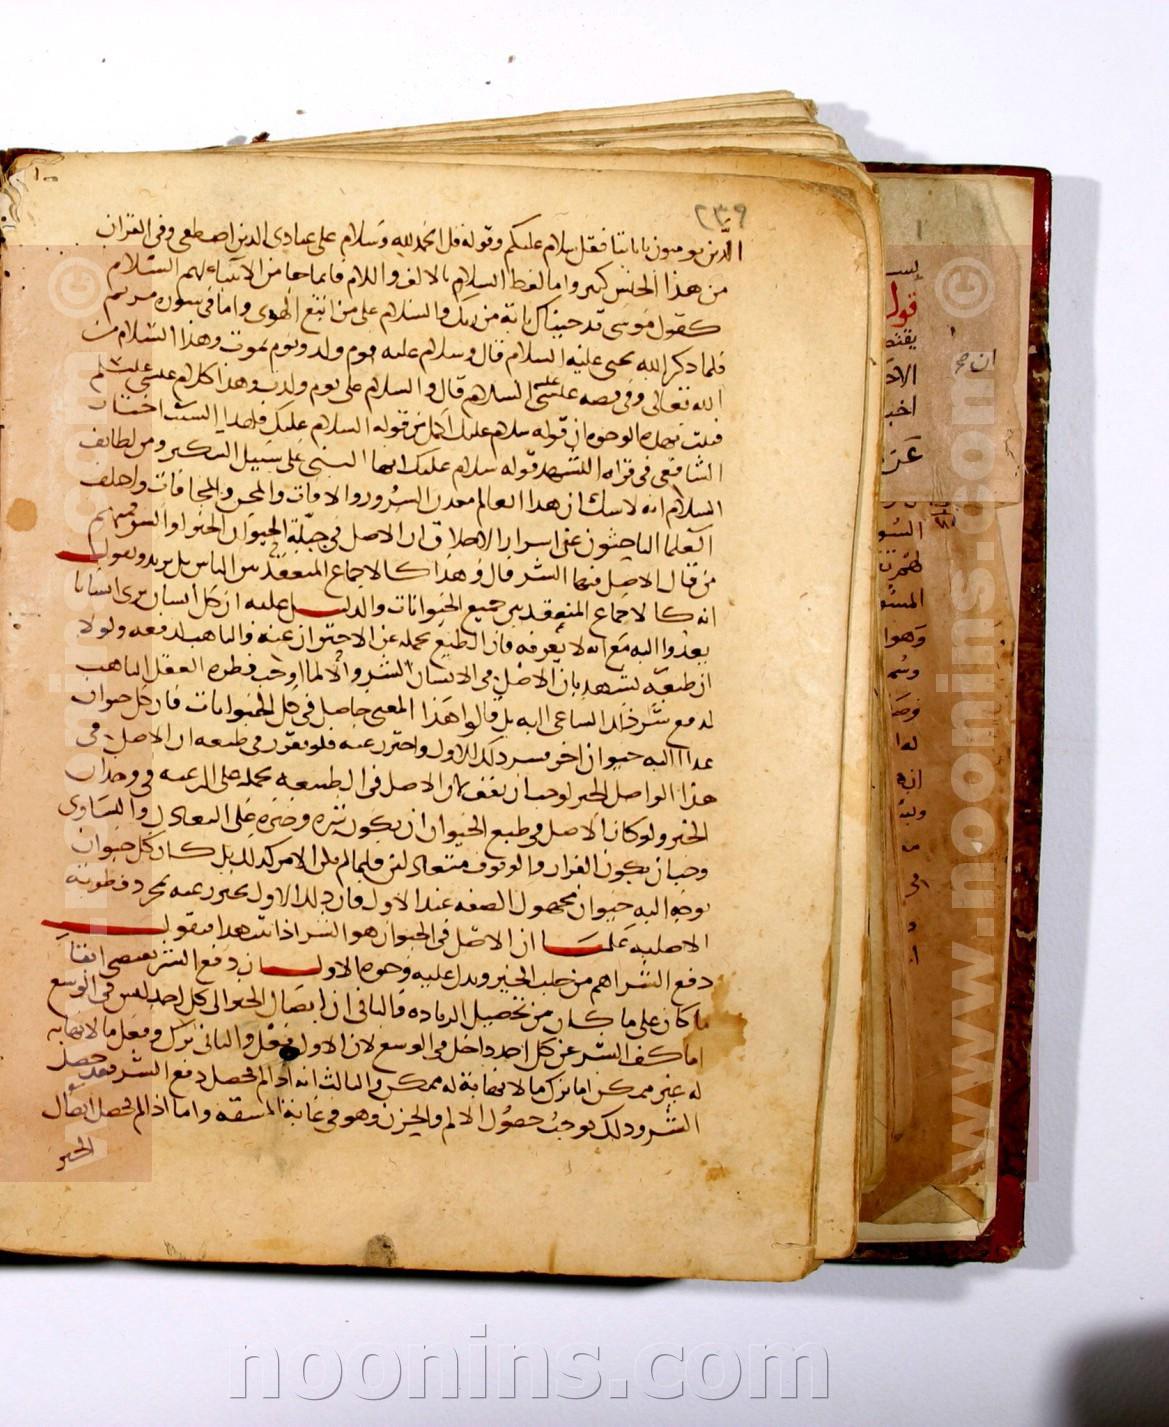 ٢٣٩
الذين يومنون باياتنا فقل سلام عليكم وقوله قل الحمد لله وسلام على عبادى الذين اصطفى وفى القران
من هذا الجنس كثير واما لفظ السلام بالالف واللام فانما جا من الانبياء لهم السلام
كقول موسى قد جيناك باية من ربك والسلام على من اتبع الهدى واما فى سورة مريم
فلما ذكر الله يحيى عليه السلام قال وسلام عليه يوم ولد ويوم يموت وهذا السلام من
الله تعالى وفى قصه عيسى عليه السلام قال والسلام على يوم ولدت وهذا كلام عيسى عليه السلم
فثبت بهذه الوجوه ان قوله سلام عليك اكمل من قوله السلام عليك فلهذا السبب اختار
الشافعى فى قراه التشهد قوله سلام عليك ايها النبى على سبيل التنكير ومن لطائف
السلام انه لا شك ان هذا العالم معدن الشرور والافات والمحن والمخافات واختلف
العلما الباحثون عن اسرار الاخلاق ان الاصل فى جبلة الحيوان الخير او الشر فمنهم
من قال الاصل فيها الشر قال وهذا كالاجماع المنعقد بين الناس بل يزيد ويقول
انه كالاجماع المنعقد بين جميع الحيوانات والدليل عليه ان كل انسان يرى انسانا
يعدوا اليه مع انه لا يعرفه فان الطبع يحمله على الاحتراز عنه والتاهب لدفعه ولولا
ان طبعه يشهد بان الاصل فى الانسان الشر والا لما اوجب فطره العقل التاهب
لدفع شر ذلك الساعى اليه بل قالوا هذا المعنى حاصل فى كل الحيوانات فان كل حيوان
عدا اليه حيوان اخر فر ذلك الاول واحترز عنه فلو تقرر فى طبعه ان الاصل فى
هذا الواصل الخير لوجب ان يقف لان الاصل فى الطبيعه يحمله على الرغبه فى وجدان
الخير ولو كان الاصل فى طبع الحيوان ان يكون شره وخيره على التعادل والتساوى
وجب ان يكون الفرار والوقوف متعادلين فلما لم يكن الامر كذلك بل كان كل حيوان
توجه اليه حيوان مجهول الصفه عند الاول فان ذلك الاول يحترز عنه بمجرد فطرته
الاصليه علمنا ان الاصل فى الحيوان هو الشر اذا ثبت هذا فنقول
دفع الشر اهم من جلب الخير ويدل عليه وجوه الاول ان دفع الشر يقتضى ابقا
ما كان على ما كان من تحصيل الزياده والثانى ان ايصال الخير الى كل احد ليس فى الوسع
اما كف الشر عن كل احد داخل فى الوسع لان الاول فعل والثانى ترك وفعل ما لا نهاية
له غير ممكن اما ترك ما لا نهاية له ممكن والثالث انه اذا لم يحصل دفع الشر فقد حصل
الشر وذلك يوجب حصول الالم والحزن وهو فى غاية المشقه واما اذا لم يحصل ايصال
الخير
قول
ان صح
www.noonins.com ©
www.noonins.com ©
noonins.com